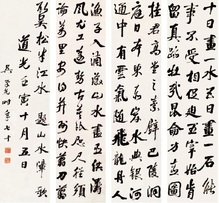 十日畫一水五日畫一石
能事不受相促迫王宰始肯
留真跡壯哉崑崙方壺圖
挂君高堂之素壁巴陵洞庭
日本東赤岸水與銀河通
中有雲氣隨飛龍舟人
漁子入浦漵山木盡亞洪濤
風尤工遠勢古莫比咫尺應須
論萬里焉得并州快剪刀剪
取吳松半江水 題山水障歌
道光壬寅十月五日
吳榮光時年七十